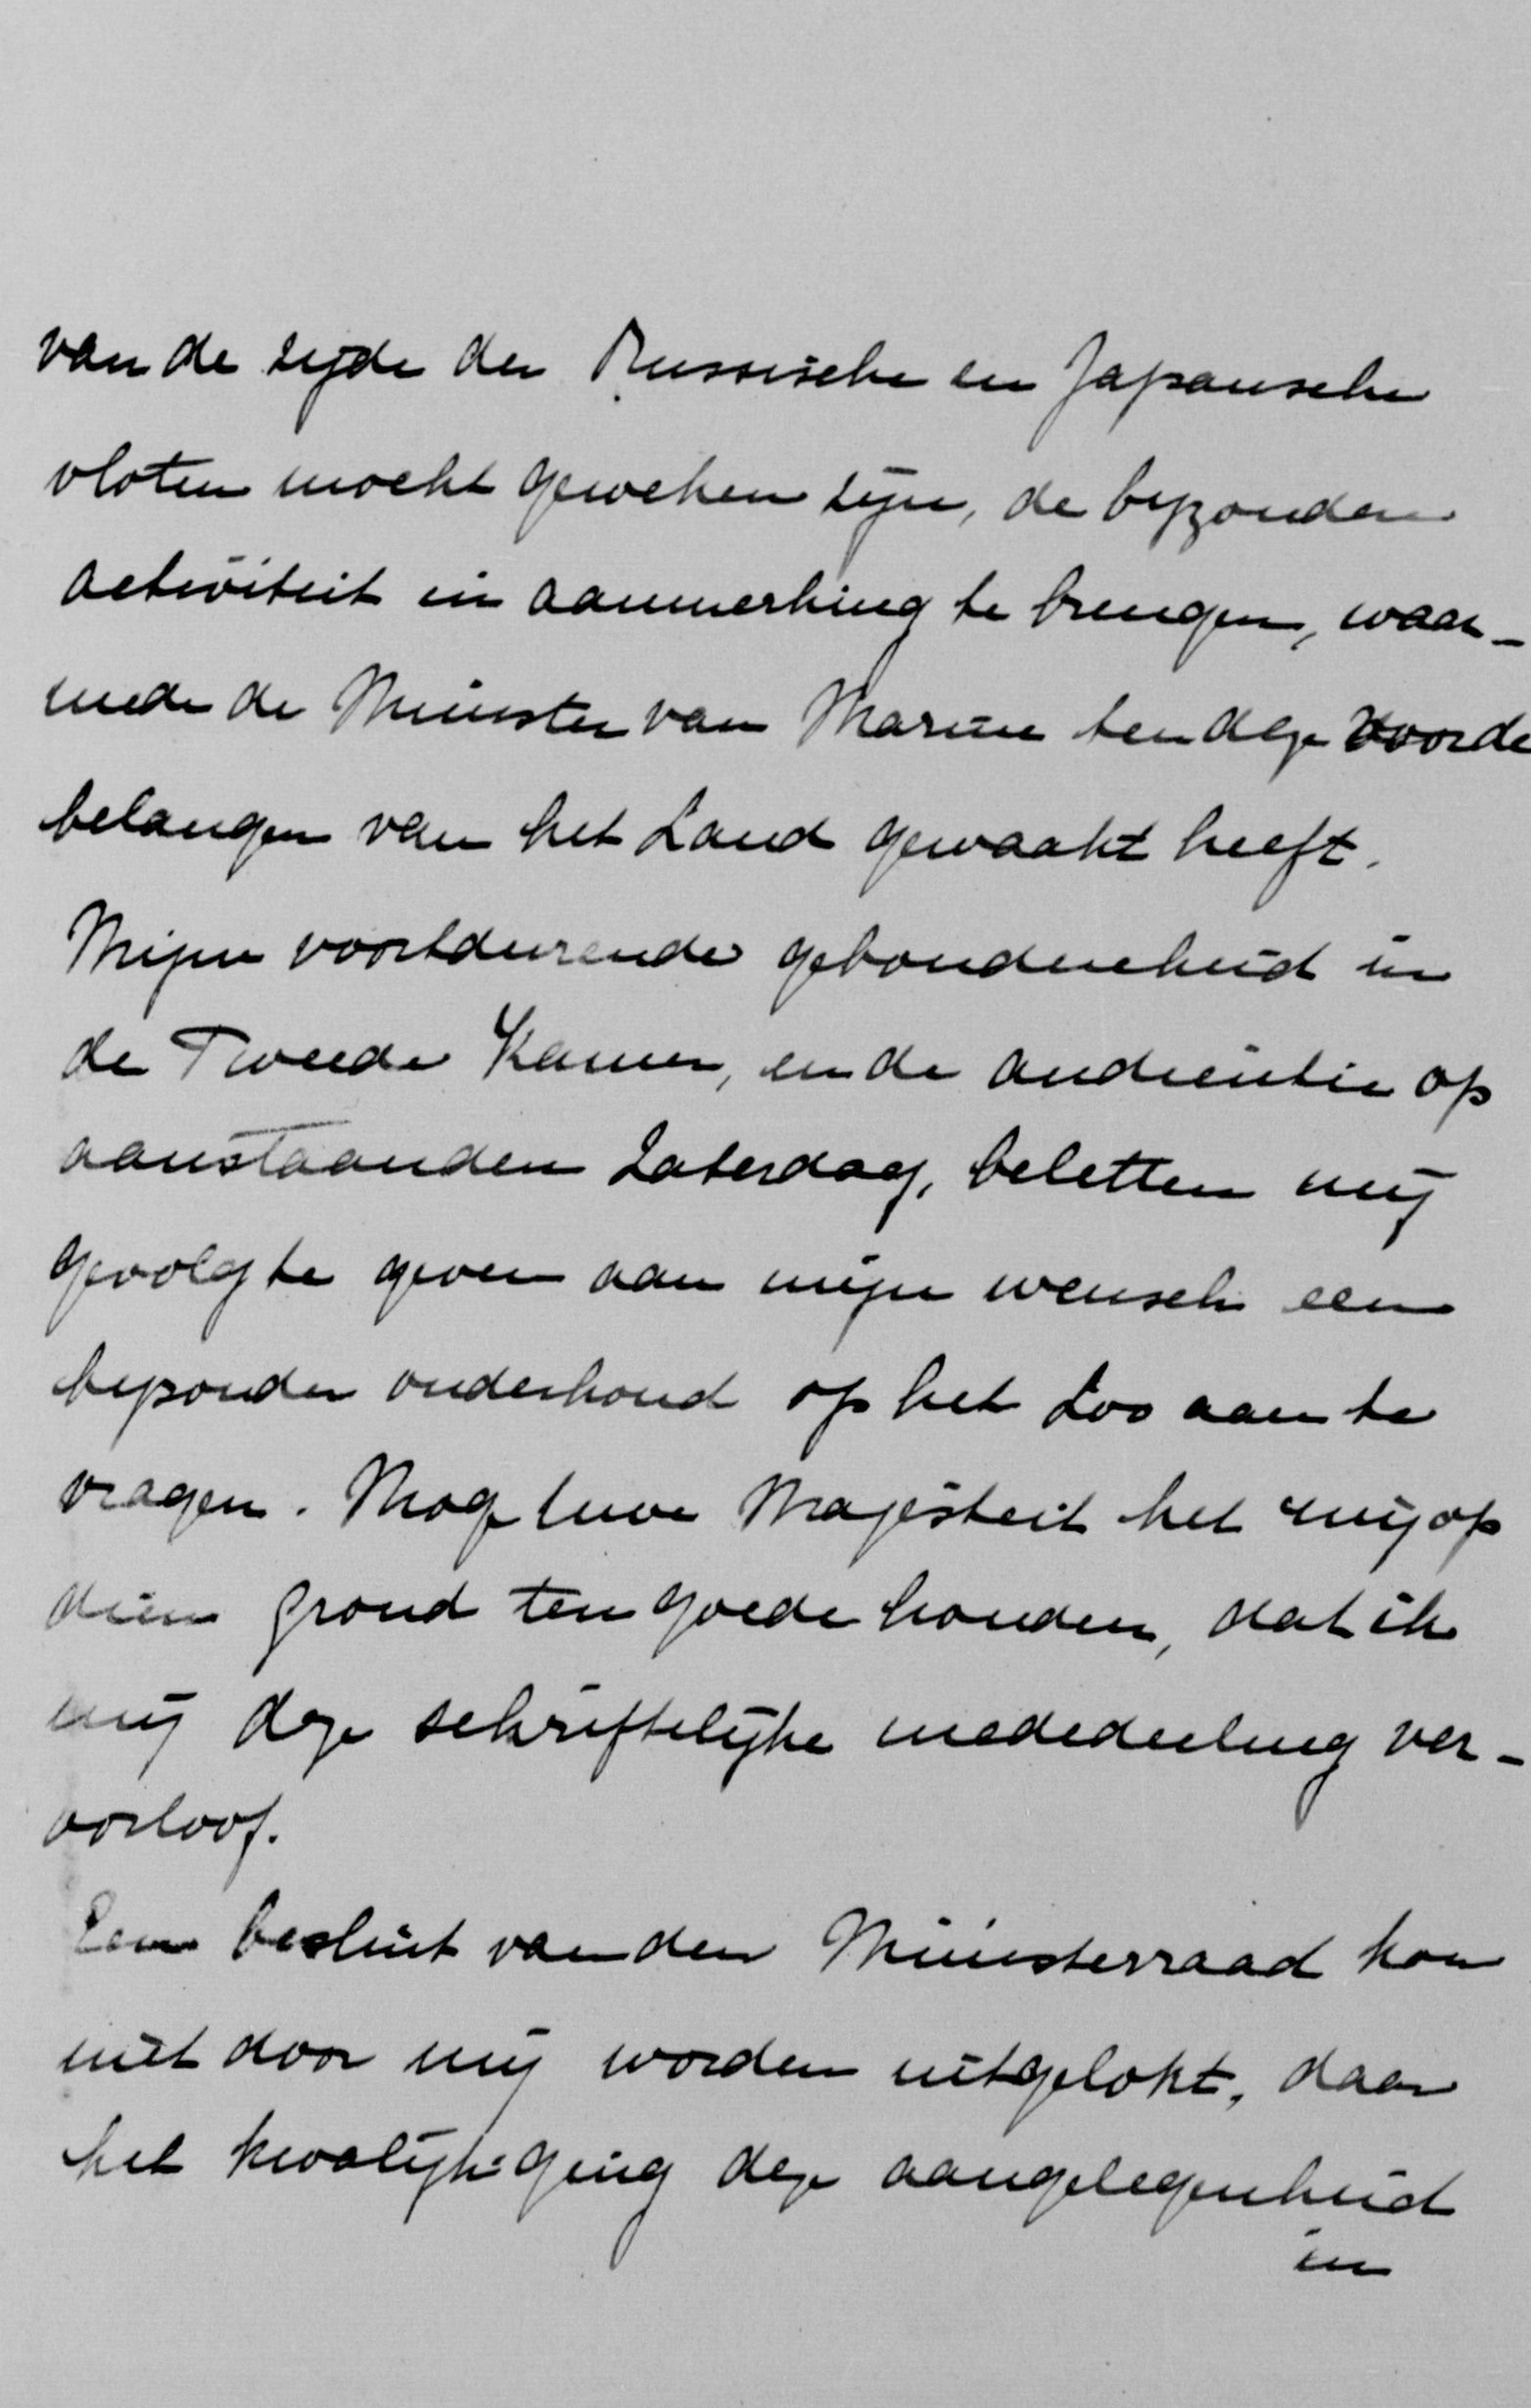 van de zijde der Russische en Japansche
vloten mocht geweken zijn, de bijzondere
activiteit in aanmerking te brengen, waar-
mede de Minister van Marine ten deze voor de
belangen van het Land gewaakt heeft.
Mijne voortdurende gebondenheid in
de Tweede Kamer, en de audientie op
aanstaanden Zaterdag, beletten mij
gevolg te geven aan mijn wensch een
bijzonder onderhoud op het Loo aan te
vragen. Moge Uwe Majesteit het mij op
dien grond ten goede houden, dat ik
mij deze schriftelijke mededeeling ver-
oorloof.
Een besluit van den Ministerraad kon
niet door mij worden uitgelokt, daar
het kwalijk ging deze aangelegenheid
in